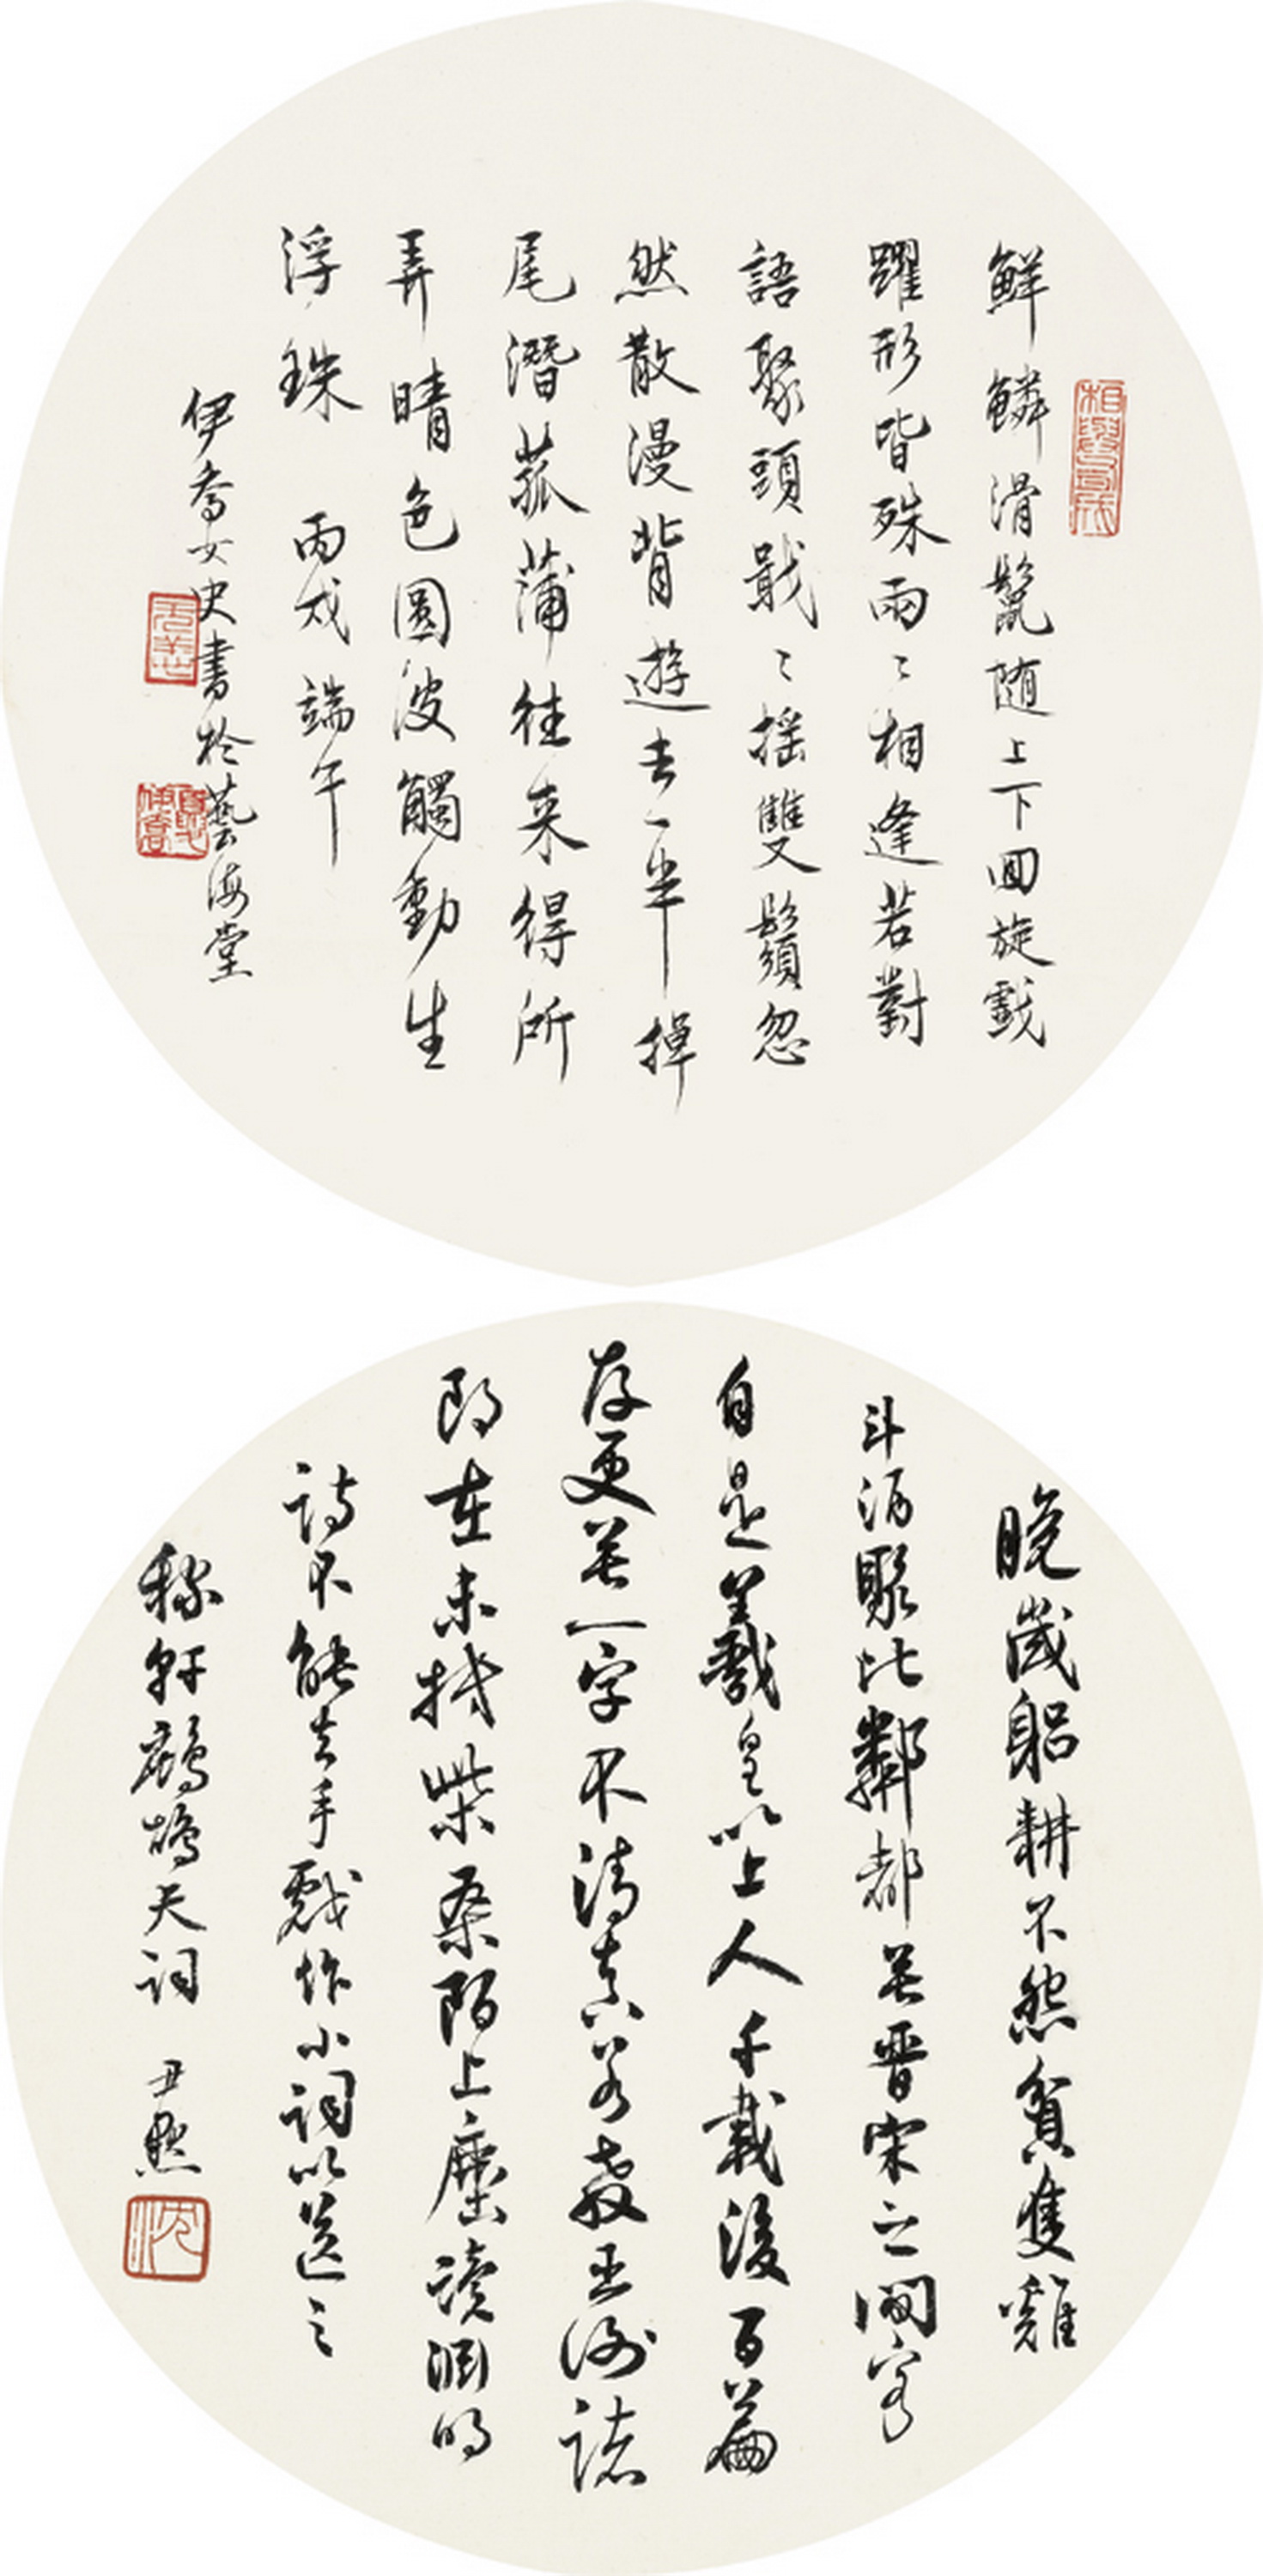 鮮鱗滑鬛随上下回旋戲
躍形皆殊兩〻相逢若對
語聚頭戢〻摇雙鬚忽
然散漫背遊去一半掉
尾潛菰蒲往来得所
弄晴色圓波觸動生
浮珠 丙戌端午
伊喬女史書於藝海堂
晚歲躬耕不怨貧隻雞
斗酒聚比鄰都無晋宋之間事
自是羲皇以上人千載後百篇
存更無一字不清真若教王謝諸
郎在未抵柴桑陌上塵读淵明
詩不能去手戲作小詞以送之
稼軒鷓鴣天詞 尹默
沈